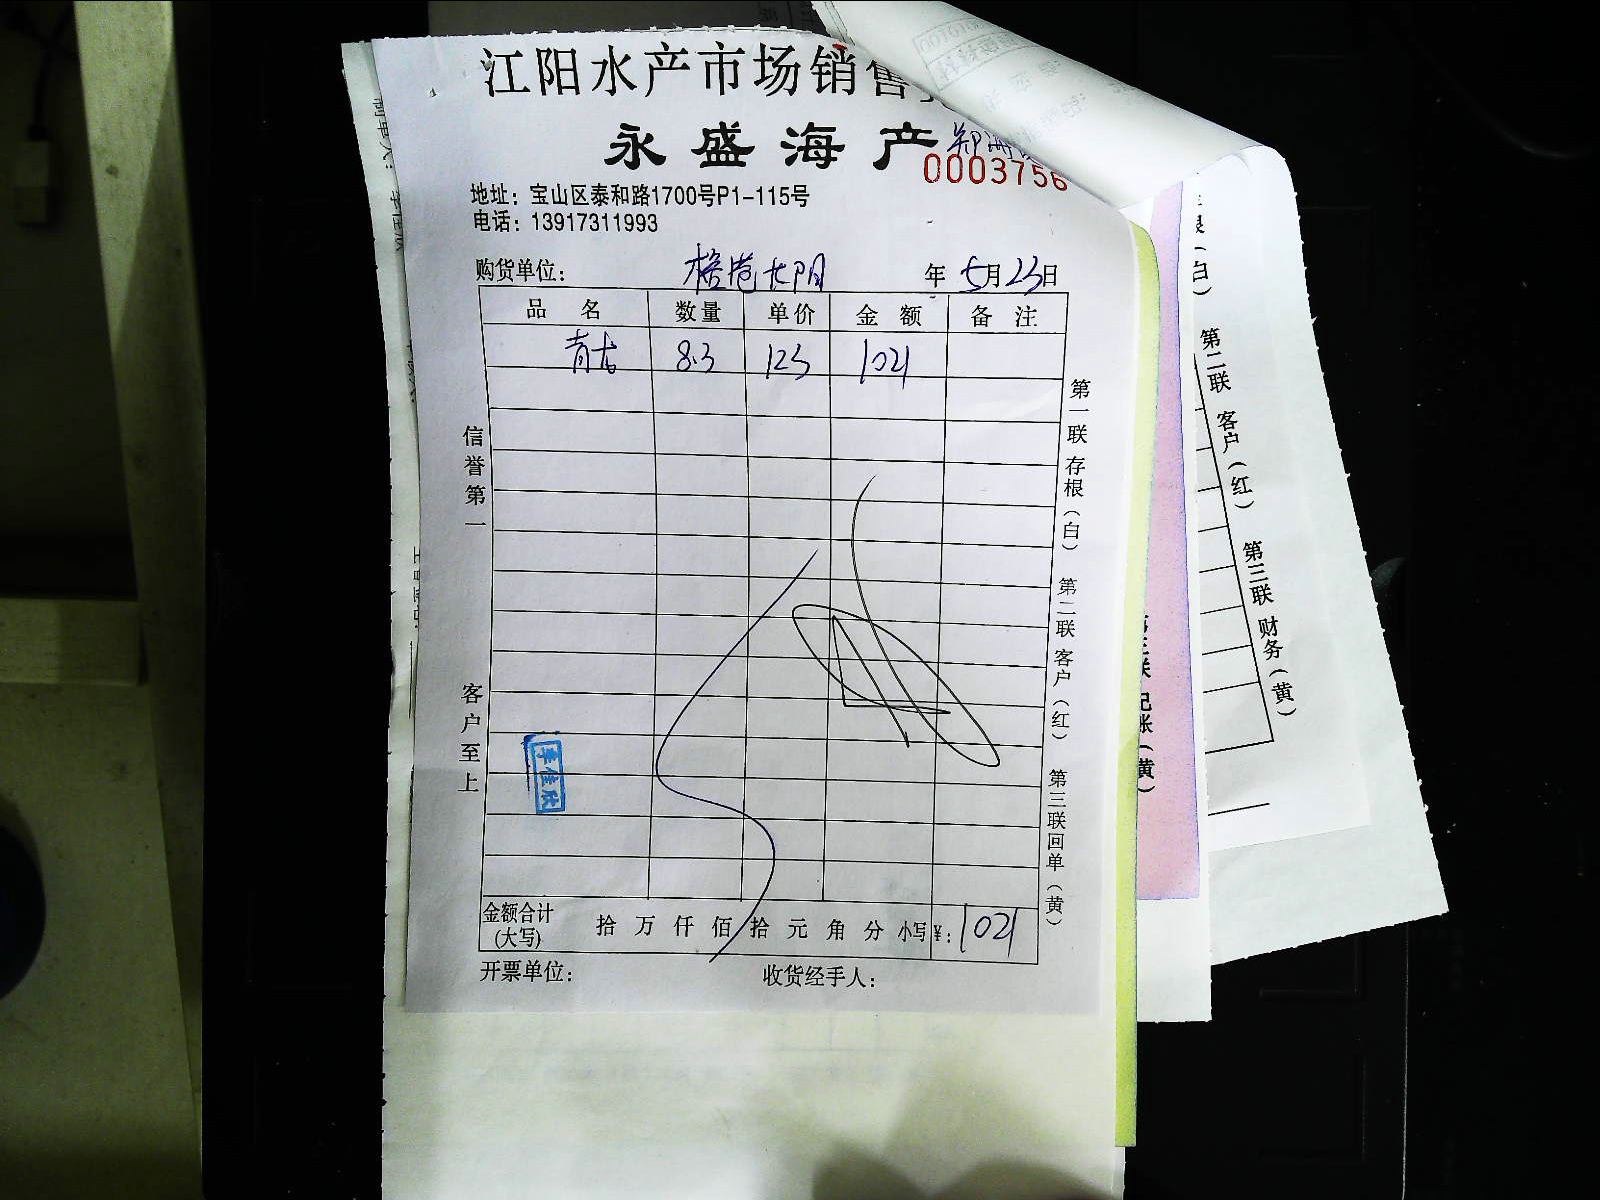 江阳水产市场销售
永盛海产
0003756
地址：宝山区泰和路1700号P1-115号
电话：13917311993
购货单位： 年 5月23日
品名 数量 单价 金额 备注
青古 8.3 123 1021
信誉第一 客户至上
第一联 存根（白） 第二联 客户（红） 第三联 回单（黄）
李佳欣
金额合计（大写） 拾 万 仟 佰 拾 元 角 分 小写¥: 1021
开票单位： 收货经手人：
联 记账（黄）
（白） 第二联 客户（红） 第三联 财务（黄）